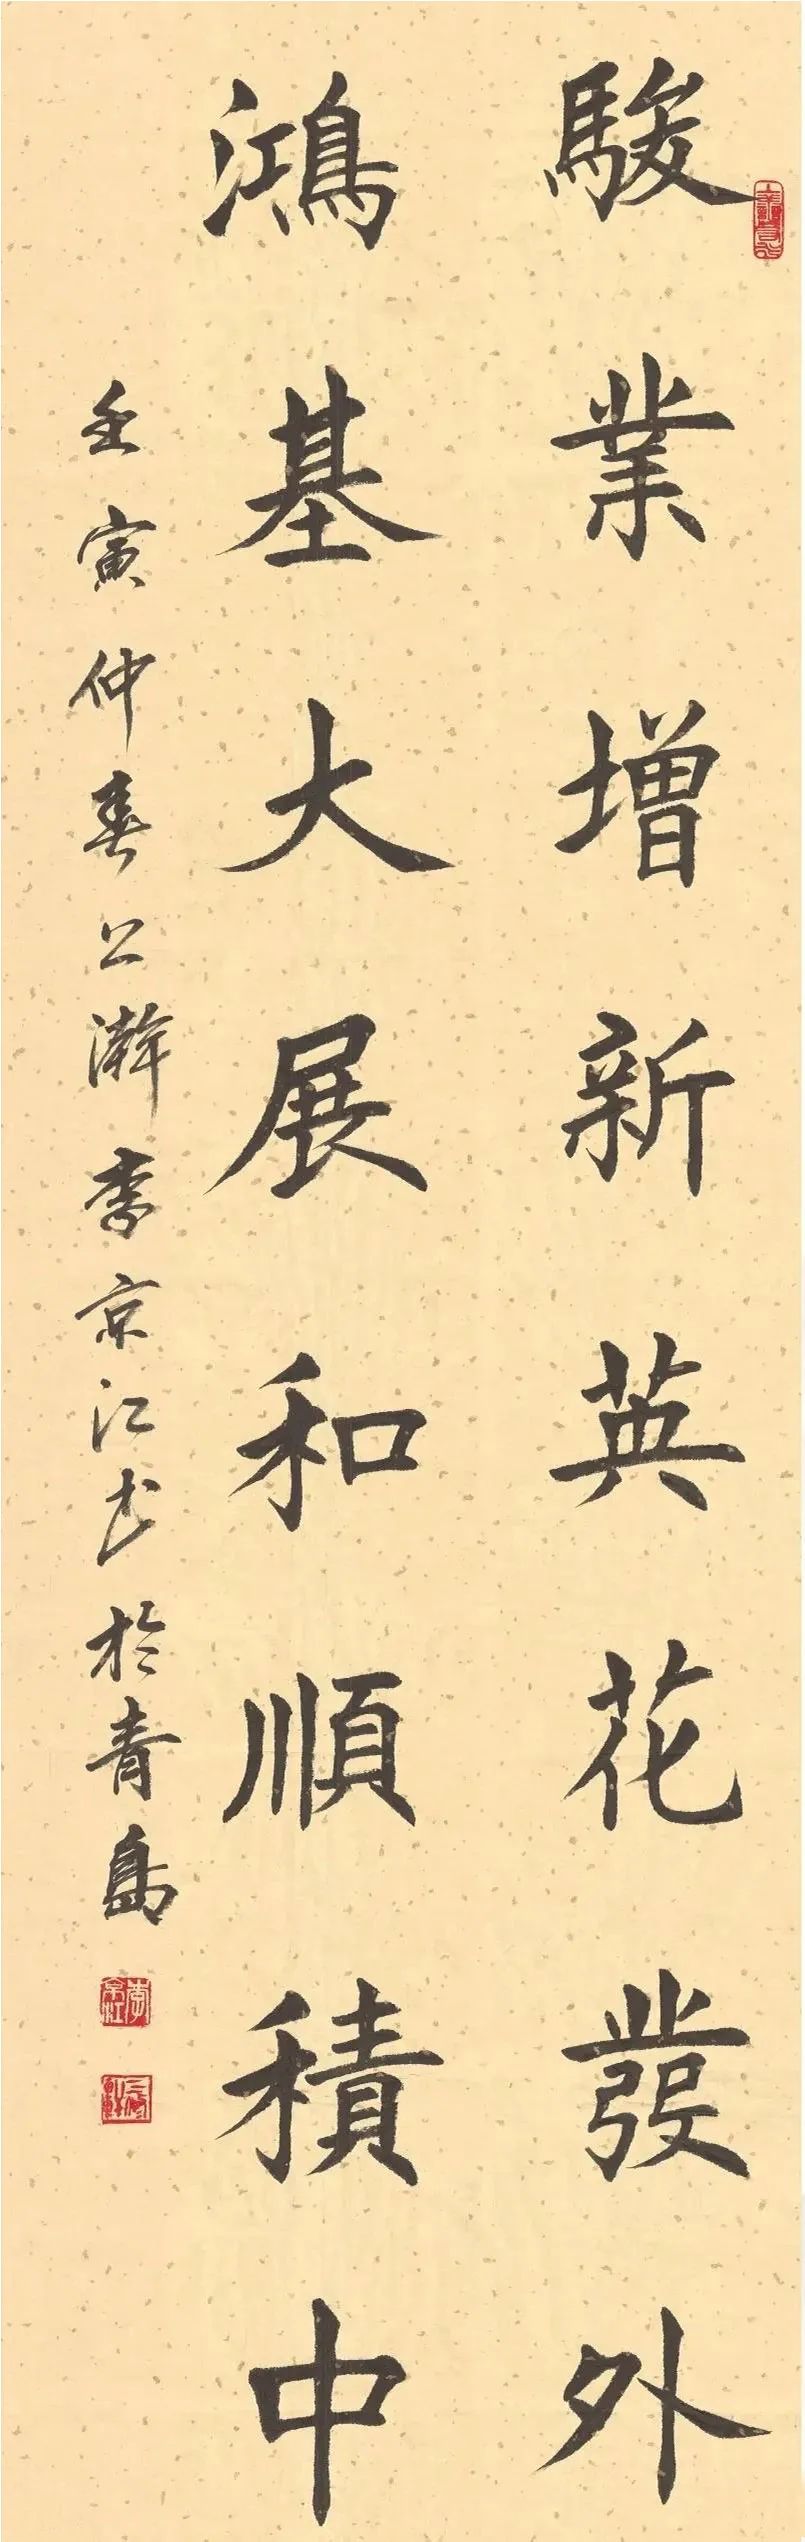 駿業增新英花發外
鴻基大展和順積中
壬寅仲春上瀚李京江书於青島
李京江